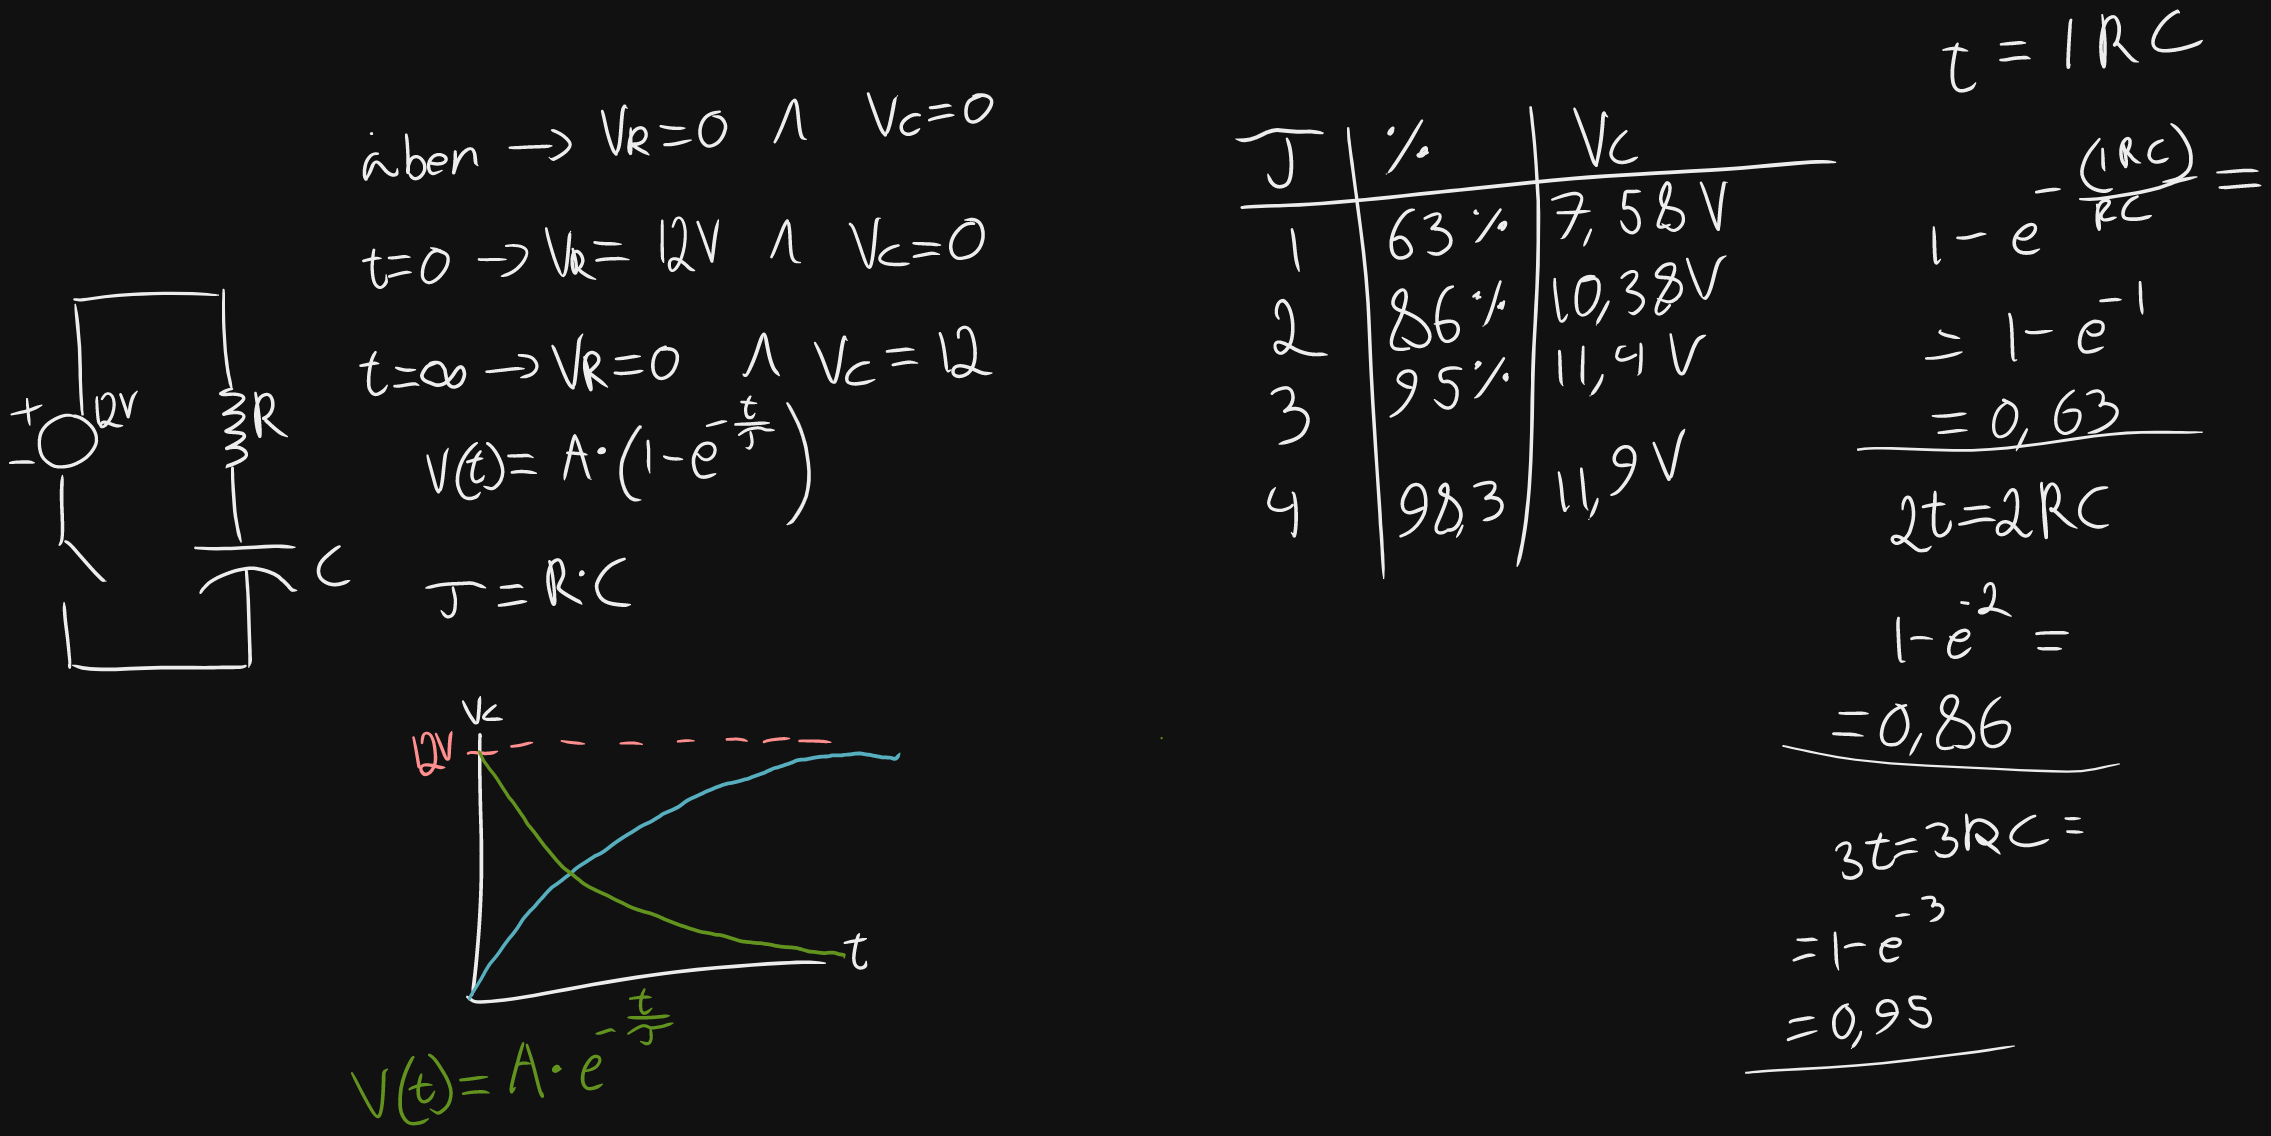 åben → VR=0 ∧ VC=0
t=0 → VR= 12V ∧ VC=0
t=∞ → VR=0 ∧ VC = 12
V(t)= A·(1-e^-t/J)
J = R·C
+ 12V
-
R
C
VC
12V
t
V(t)= A·e^-t/J
J % VC
1 63% 7,58V
2 86% 10,38V
3 95% 11,4V
4 98,3 11,9V
t = 1RC
1-e^-(1RC)/RC =
= 1-e^-1
= 0,63
2t=2RC
1-e^-2 =
=0,86
3t=3RC=
=1-e^-3
=0,95